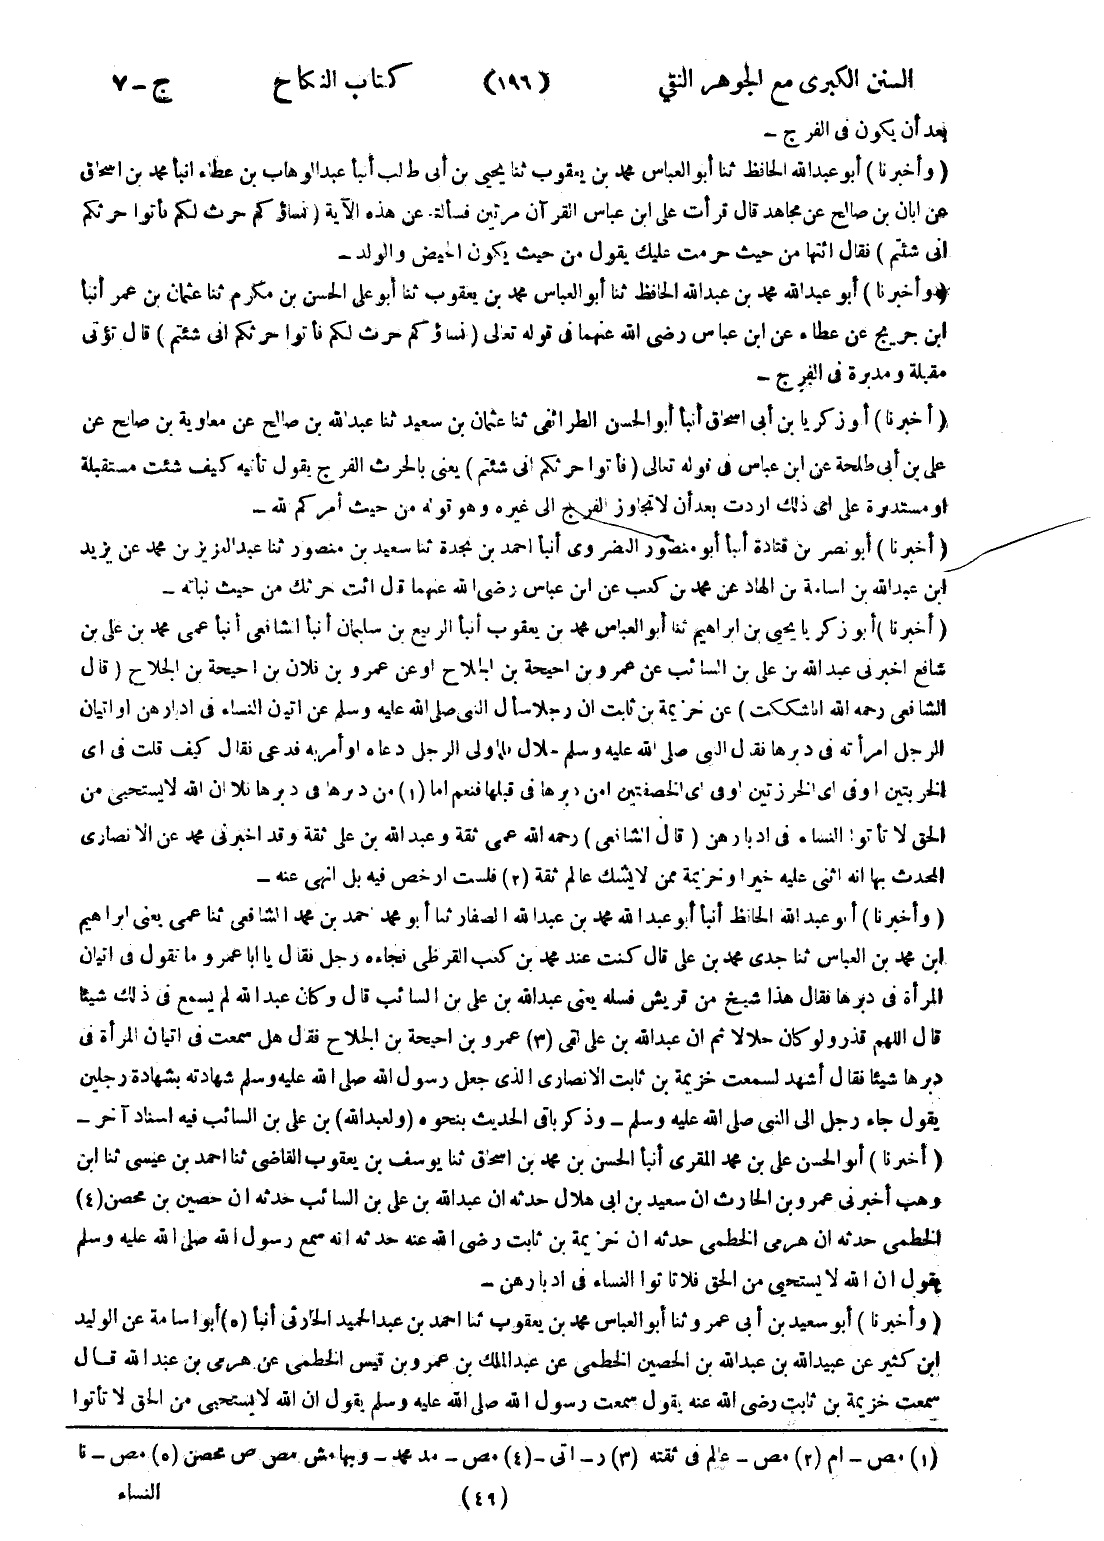 السنن الكبرى مع الجوهر النقي (١٩٦) كتاب النكاح ج - ٧
بعد أن يكون فى الفرج -
( وأخبرنا ) أبو عبدالله الحافظ ثنا أبو العباس محمد بن يعقوب ثنا يحيى بن أبى طالب أنبأ عبدالوهاب بن عطاء انبأ محمد بن اسحاق
عن ابان بن صالح عن مجاهد قال قرأت على ابن عباس القرآن مرتين فسألته عن هذه الآية ( نساؤكم حرث لكم فأتوا حرثكم
انى شئتم ) فقال ائتها من حيث حرمت عليك يقول من حيث يكون الحيض والولد -
( وأخبرنا ) أبو عبدالله محمد بن عبدالله الحافظ ثنا أبو العباس محمد بن يعقوب ثنا أبو على الحسن بن مكرم ثنا عثمان بن عمر أنبأ
ابن جريج عن عطاء عن ابن عباس رضى الله عنهما فى قوله تعالى ( نساؤكم حرث لكم فأتوا حرثكم انى شئتم ) قال تؤتى
مقبلة ومدبرة فى الفرج -
( أخبرنا ) أبو زكريا بن أبى اسحاق أنبأ أبو الحسن الطرائفى ثنا عثمان بن سعيد ثنا عبدالله بن صالح عن معاوية بن صالح عن
على بن أبى طلحة عن ابن عباس فى قوله تعالى ( فأتوا حرثكم انى شئتم ) يعنى بالحرث الفرج يقول تأتيه كيف شئت مستقبلة
او مستدبرة على اى ذلك اردت بعد أن لا تجاوز الفرج الى غيره وهو قوله من حيث أمركم الله -
( أخبرنا ) أبو نصر بن قتادة أنبأ أبو منصور النضروى أنبأ احمد بن نجدة ثنا سعيد بن منصور ثنا عبدالعزيز بن محمد عن يزيد
ابن عبدالله بن اسامة بن الهاد عن محمد بن كعب عن ابن عباس رضى الله عنهما قال ائت حرثك من حيث نباته -
( أخبرنا ) أبو زكريا يحيى بن ابراهيم ثنا أبو العباس محمد بن يعقوب أنبأ الربيع بن سليمان أنبأ الشافعى أنبأ عمى محمد بن على بن
شافع اخبرنى عبدالله بن على بن السائب عن عمرو بن احيحة بن الجلاح او عن عمرو بن فلان بن احيحة بن الجلاح ( قال
الشافعى رحمه الله انا شككت ) عن خزيمة بن ثابت ان رجلا سأل النبى صلى الله عليه وسلم عن اتيان النساء فى ادبارهن او اتيان
الرجل امرأته فى دبرها فقال النبى صلى الله عليه وسلم - حلال فلما ولى الرجل دعاه او أمر به فدعى فقال كيف قلت فى اى
الخربتين اوفى اى الخرزتين اوفى اى الخصفتين امن دبرها فى قبلها فنعم اما (١) من دبرها فى دبرها فلا ان الله لا يستحيى من
الحق لا تأتوا النساء فى ادبارهن ( قال الشافعى ) رحمه الله عمى ثقة وعبدالله بن على ثقة وقد اخبرنى محمد عن الانصارى
المحدث بها انه اثنى عليه خيرا وخزيمة ممن لا يشك عالم ثقة (٢) فلست ارخص فيه بل انهى عنه -
( وأخبرنا ) أبو عبدالله الحافظ أنبأ أبو عبدالله محمد بن عبدالله الصفار ثنا أبو محمد احمد بن محمد الشافعى ثنا عمى يعنى ابراهيم
ابن محمد بن العباس ثنا جدى محمد بن على قال كنت عند محمد بن كعب القرظى فجاءه رجل فقال يا ابا عمرو ما تقول فى اتيان
المرأة فى دبرها فقال هذا شيخ من قريش فسله يعنى عبدالله بن على بن السائب قال وكان عبدالله لم يسمع فى ذلك شيئا
قال اللهم قذر ولو كان حلالا ثم ان عبدالله بن على لقى (٣) عمرو بن احيحة بن الجلاح فقال هل سمعت فى اتيان المرأة فى
دبرها شيئا فقال أشهد لسمعت خزيمة بن ثابت الانصارى الذى جعل رسول الله صلى الله عليه وسلم شهادته بشهادة رجلين
يقول جاء رجل الى النبى صلى الله عليه وسلم - وذكر باقى الحديث بنحوه (ولعبدالله) بن على بن السائب فيه اسناد آخر -
( أخبرنا ) أبو الحسن على بن محمد المقرى أنبأ الحسن بن محمد بن اسحاق ثنا يوسف بن يعقوب القاضى ثنا احمد بن عيسى ثنا ابن
وهب أخبرنى عمرو بن الحارث ان سعيد بن ابى هلال حدثه ان عبدالله بن على بن السائب حدثه ان حصين بن محصن (٤)
الخطمى حدثه ان هرمى الخطمى حدثه ان خزيمة بن ثابت رضى الله عنه حدثه انه سمع رسول الله صلى الله عليه وسلم
يقول ان الله لا يستحيى من الحق فلا تاتوا النساء فى ادبارهن -
( وأخبرنا ) أبو سعيد بن أبى عمرو ثنا أبو العباس محمد بن يعقوب ثنا احمد بن عبدالحميد الحارثى أنبأ (٥) أبو اسامة عن الوليد
ابن كثير عن عبيدالله بن عبدالله بن الحصين الخطمى عن عبدالملك بن عمرو بن قيس الخطمى عن هرمى بن عبدالله قال
سمعت خزيمة بن ثابت رضى الله عنه يقول سمعت رسول الله صلى الله عليه وسلم يقول ان الله لا يستحيى من الحق لا تأتوا
(١) مص - ام (٢) مص - عالم فى ثقته (٣) ر - اتى - (٤) مص - مد محمد - وبهامش مص ص محصن (٥) مص - ثنا
النساء
(٤٩)